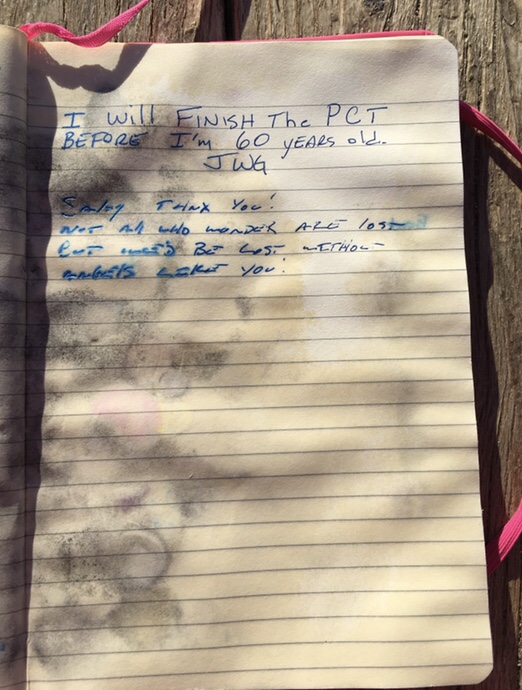 I Will FINISH The PCT
BEFORE I'm 60 YEARS old.
JWG
THANK YOU!
NOT All WHO WONDER ARE lOST
BUT WE'D BE LOST WITHOUT
ANGELS LIKE YOU!